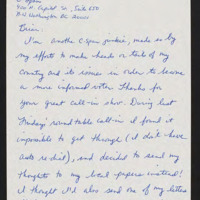 400 N. Capitol St., Suite 650
N.W. Washington DC 20001
Brian:
I'm another C-Span junkie, made so by
my efforts to make heads or tails of my
country and its issues in order to become
a more informed voter. Thanks for
your great call-in show. During last
Friday's round table call-in I found it
impossible to get through (I don't have
auto re-dial), and decided to send my
thoughts to my local papers instead!
I thought I'd also send one of my letters